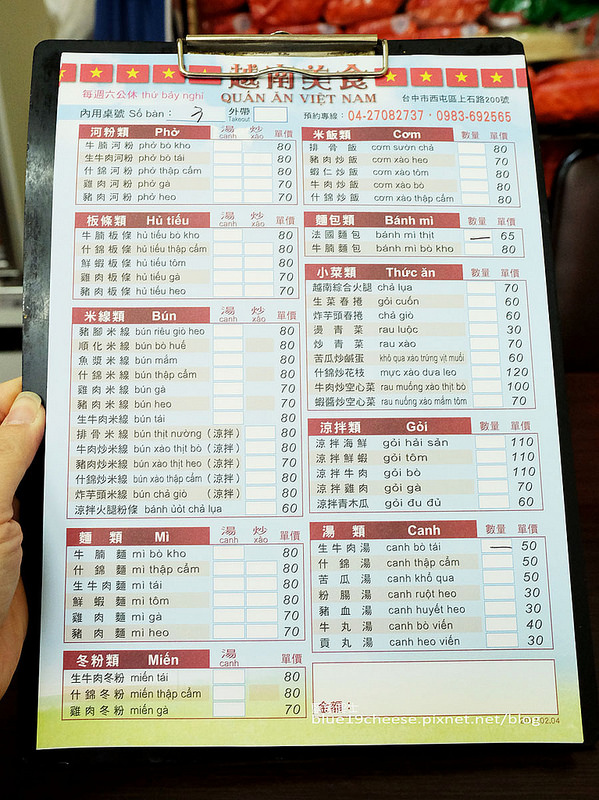 越南美食
QUÁN ĂN VIỆT NAM
每週六公休 thứ bảy nghỉ
台中市西屯區上石路200號
內用桌號 Số bàn： 3
外帶 Takeout
預約專線：04-27082737．0983-692565
河粉類 Phở 湯 canh 炒 xào 單價
牛腩河粉 phở bò kho 80
生牛肉河粉 phở bò tái 80
什錦河粉 phở thập cẩm 80
雞肉河粉 phở gà 70
豬肉河粉 phở heo 70
板條類 Hủ tiếu 湯 canh 炒 xào 單價
牛腩板條 hủ tiếu bò kho 80
什錦板條 hủ tiếu thập cẩm 80
鮮蝦板條 hủ tiếu tôm 80
雞肉板條 hủ tiếu gà 70
豬肉板條 hủ tiếu heo 70
米線類 Bún 湯 canh 炒 xào 單價
豬腳米線 bún riêu giò heo 80
順化米線 bún bò huế 80
魚漿米線 bún mắm 80
什錦米線 bún thập cẩm 80
雞肉米線 bún gà 70
豬肉米線 bún heo 70
生牛肉米線 bún tái 80
排骨米線 bún thịt nướng（涼拌） 80
牛肉炒米線 bún xào thịt bò（涼拌） 80
豬肉炒米線 bún xào thịt heo（涼拌） 70
什錦炒米線 bún xào thập cẩm（涼拌） 80
炸芋頭米線 bún chả giò（涼拌） 80
涼拌火腿粉條 bánh ướt chả lụa 60
麵類 Mì 湯 canh 炒 xào 單價
牛腩麵 mì bò kho 80
什錦麵 mì thập cẩm 80
生牛肉麵 mì tái 80
鮮蝦麵 mì tôm 80
雞肉麵 mì gà 70
豬肉麵 mì heo 70
冬粉類 Miến 湯 canh 單價
生牛肉冬粉 miến tái 80
什錦冬粉 miến thập cẩm 80
雞肉冬粉 miến gà 70
米飯類 Cơm 數量 單價
排骨飯 cơm sườn chả 80
豬肉炒飯 cơm xào heo 70
蝦仁炒飯 cơm xào tôm 80
牛肉炒飯 cơm xào bò 80
什錦炒飯 cơm xào thập cẩm 80
麵包類 Bánh mì 數量 單價
法國麵包 bánh mì thịt 一 65
牛腩麵包 bánh mì bò kho 80
小菜類 Thức ăn 數量 單價
越南綜合火腿 chả lụa 70
生菜春捲 gỏi cuốn 60
炸芋頭春捲 chả giò 60
燙青菜 rau luộc 30
炒青菜 rau xào 70
苦瓜炒鹹蛋 khổ qua xào trứng vịt muối 60
什錦炒花枝 mực xào dưa leo 120
牛肉炒空心菜 rau muống xào thịt bò 100
蝦醬炒空心菜 rau nuống xào mắm tôm 70
涼拌類 Gỏi 數量 單價
涼拌海鮮 gỏi hải sản 110
涼拌鮮蝦 gỏi tôm 110
涼拌牛肉 gỏi bò 110
涼拌雞肉 gỏi gà 70
涼拌青木瓜 gỏi đu đủ 60
湯類 Canh 數量 單價
生牛肉湯 canh bò tái 一 50
什錦湯 canh thập cẩm 50
苦瓜湯 canh khổ qua 50
粉腸湯 canh ruột heo 30
豬血湯 canh huyết heo 30
牛丸湯 canh bò viên 40
貢丸湯 canh heo viên 30
金額：
blue19cheese.pixnet.net/blog